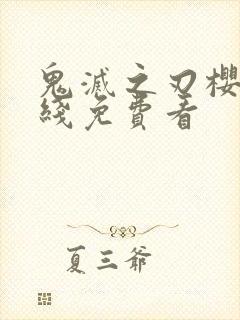 鬼滅之刃櫻
綫免費看
夏三爺